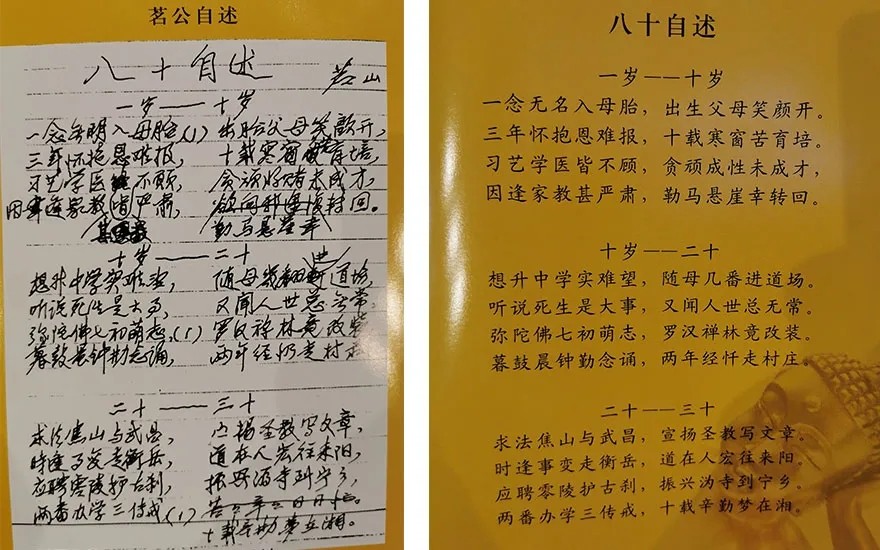 茗公自述
八十自述
茗山
一岁——十岁
一念无明入母胎(1) 出胎父母笑颜开,
三年怀抱恩难报, 十载寒窗育培,
习艺学医 不顾, 贪顽好赌未成才,
因逢家教 严肃, 转回。
甚 勒马悬崖幸
十岁——二十 进
想升中学实难望, 随母几 道场,
听说死生是大事, 又闻人世总无常,
弥陀佛七初萌志,(1) 罗汉禅林竟改装
暮鼓晨钟勤念诵, 两年经忏走村
二十——三十
求法焦山与武昌, 宣扬圣教写文章,
时逢事变走衡岳, 道在人宏往来阳,
应聘零陵护古刹, 振兴沩寺到宁乡,
两番办学三传戒(1)
十载辛勤梦在湘。
八十自述
一岁——十岁
一念无名入母胎,出生父母笑颜开。
三年怀抱恩难报,十载寒窗苦育培。
习艺学医皆不顾,贪顽成性未成才,
因逢家教甚严肃,勒马悬崖幸转回。
十岁——二十
想升中学实难望,随母几番进道场。
听说死生是大事,又闻人世总无常。
弥陀佛七初萌志,罗汉禅林竟改装。
暮鼓晨钟勤念诵,两年经忏走村庄。
二十——三十
求法焦山与武昌,宣扬圣教写文章。
时逢事变走衡岳,道在人宏往来阳。
应聘零陵护古刹,振兴沩寺到宁乡。
两番办学三传戒,十载辛勤梦在湘。